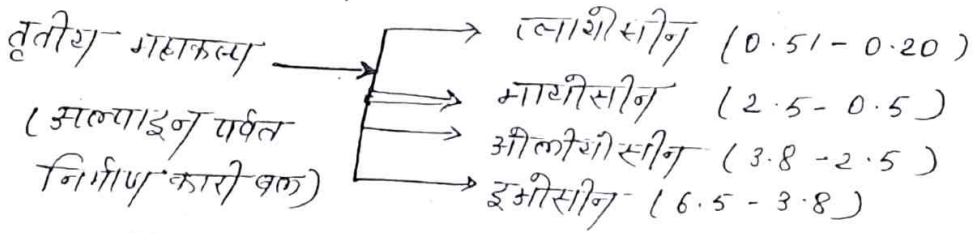 तृतीय महाकल्प
(अल्पाइन पर्वत
निर्माणकारी बल)
प्लायोसीन (0.51 - 0.20)
मायोसीन (2.5 - 0.5)
ओलीगोसीन (3.8 - 2.5)
इओसीन (6.5 - 3.8)